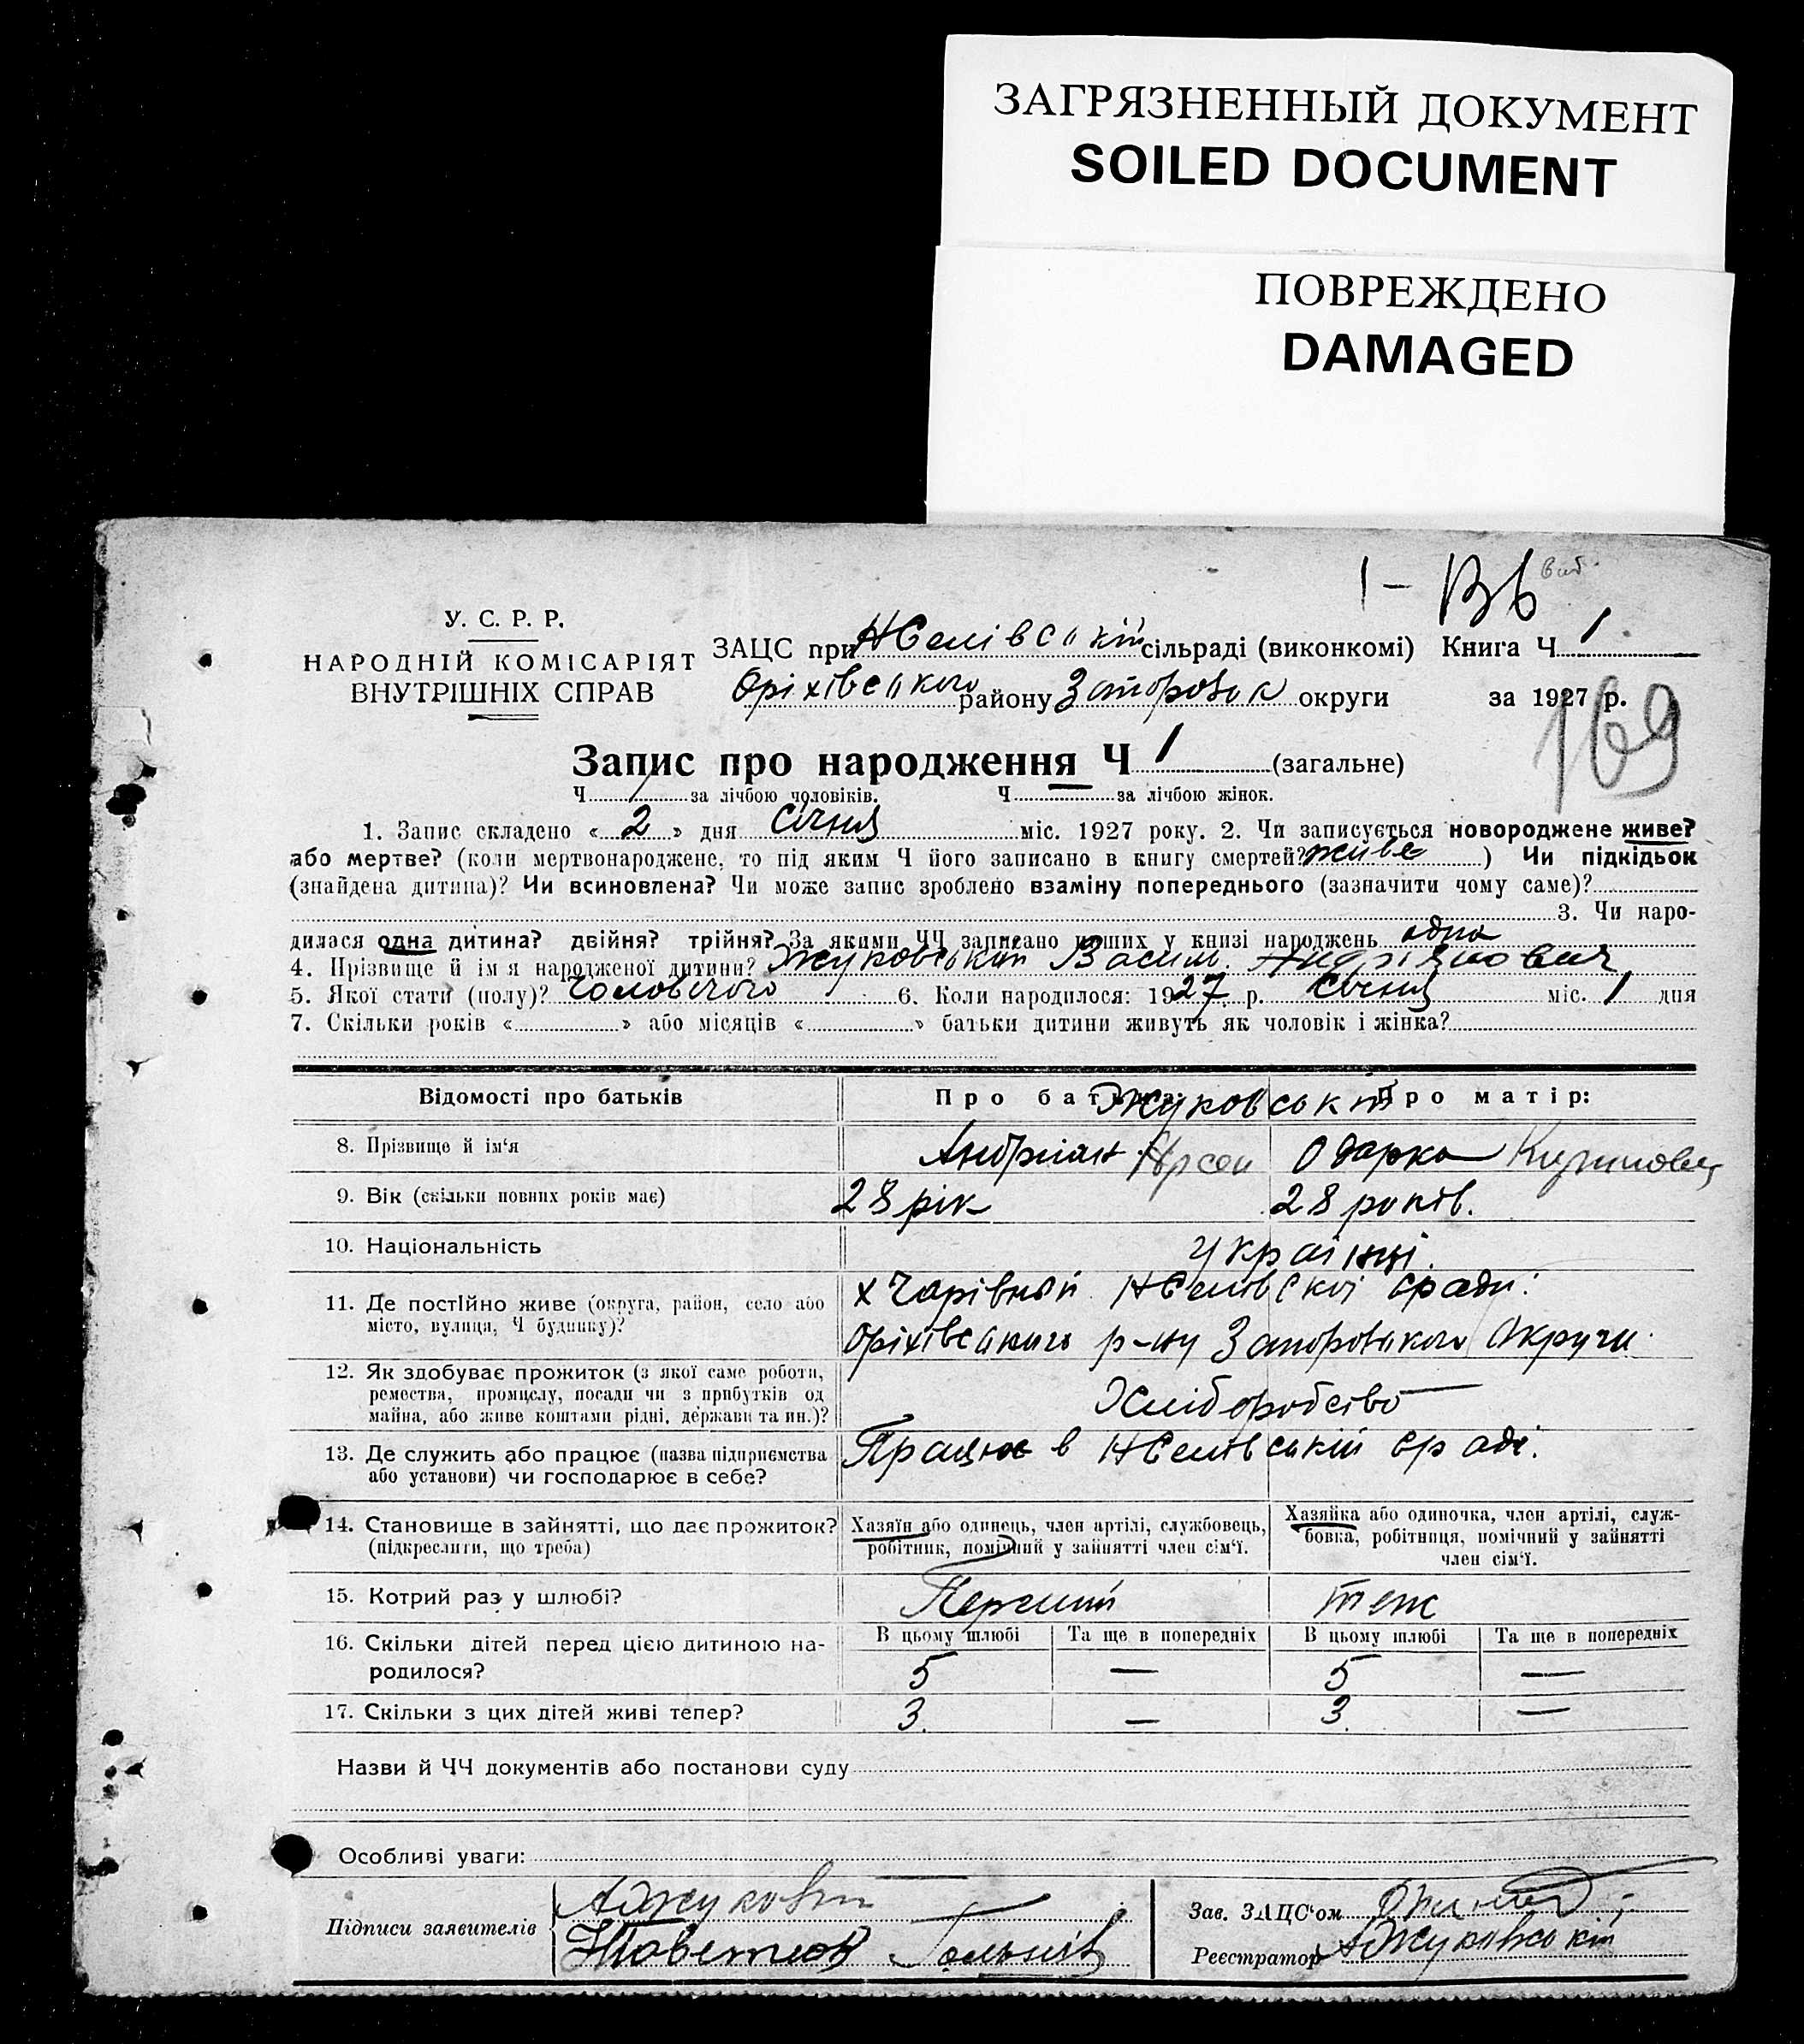 ЗАГРЯЗНЕННЫЙ ДОКУМЕНТ
SOILED DOCUMENT
ПОВРЕЖДЕНО
DAMAGED
У. С. Р. Р.
НАРОДНІЙ КОМІСАРІЯТ
ВНУТРІШНІХ СПРАВ
ЗАЦС при сільраді (виконкомі) Книга Ч 1
Оріхівського району округи за 1927 р.
169
Запис про народження Ч 1 (загальне)
Ч 1 за лічбою чоловіків. Ч за лічбою жінок.
1. Запис складено « 2 » дня Січня міс. 1927 року. 2. Чи записується новороджене живе?
або мертве? (коли мертвонароджене, то під яким Ч його записано в книгу смертей? живе ) Чи підкідьок
(знайдена дитина)? Чи всиновлена? Чи може запис зроблено взаміну попереднього (зазначити чому саме)?
3. Чи наро-
дилася одна дитина? двійня? трійня? За якими ЧЧ записано инших у книзі народжень одна
4. Прізвище й ім'я народженої дитини? Жуковський Василь Андріянович
5. Якої стати (полу)? Чоловічого 6. Коли народилося: 1927 р. Січня міс. 1 дня
7. Скільки років « » або місяців « » батьки дитини живуть як чоловік і жінка?
Відомості про батьків Про батька: Жуковські Про матір:
8. Прізвище й ім'я Андріян Арсен Одарка
9. Вік (скільки повних років має) 28 рік 28 років.
10. Національність Українці.
11. Де постійно живе (округа, район, село або
місто, вулиця, Ч будинку)?
х Чарівный
Оріхівського р-ну Запорозького Округи
12. Як здобуває прожиток (з якої саме роботи,
ремества, промислу, посади чи з прибутків од
майна, або живе коштами рідні, держави та ин.)?
Хліборобство
13. Де служить або працює (назва підприємства
або установи) чи господарює в себе?
Працює в
14. Становище в зайнятті, що дає прожиток?
(підкреслити, що треба)
Хазяїн або одинець, член артілі, службовець,
робітник, помічний у зайнятті член сім'ї.
Хазяйка або одиночка, член артілі, служ-
бовка, робітниця, помічний у зайнятті
член сім'ї.
15. Котрий раз у шлюбі? Перший теж
16. Скільки дітей перед цією дитиною на-
родилося?
В цьому шлюбі Та ще в попередніх В цьому шлюбі Та ще в попередніх
5 — 5 —
17. Скільки з цих дітей живі тепер? 3 — 3 —
Назви й ЧЧ документів або постанови суду
Особливі уваги:
Підписи заявителів
Зав. ЗАЦС'ом
Реєстратор АЖуковський